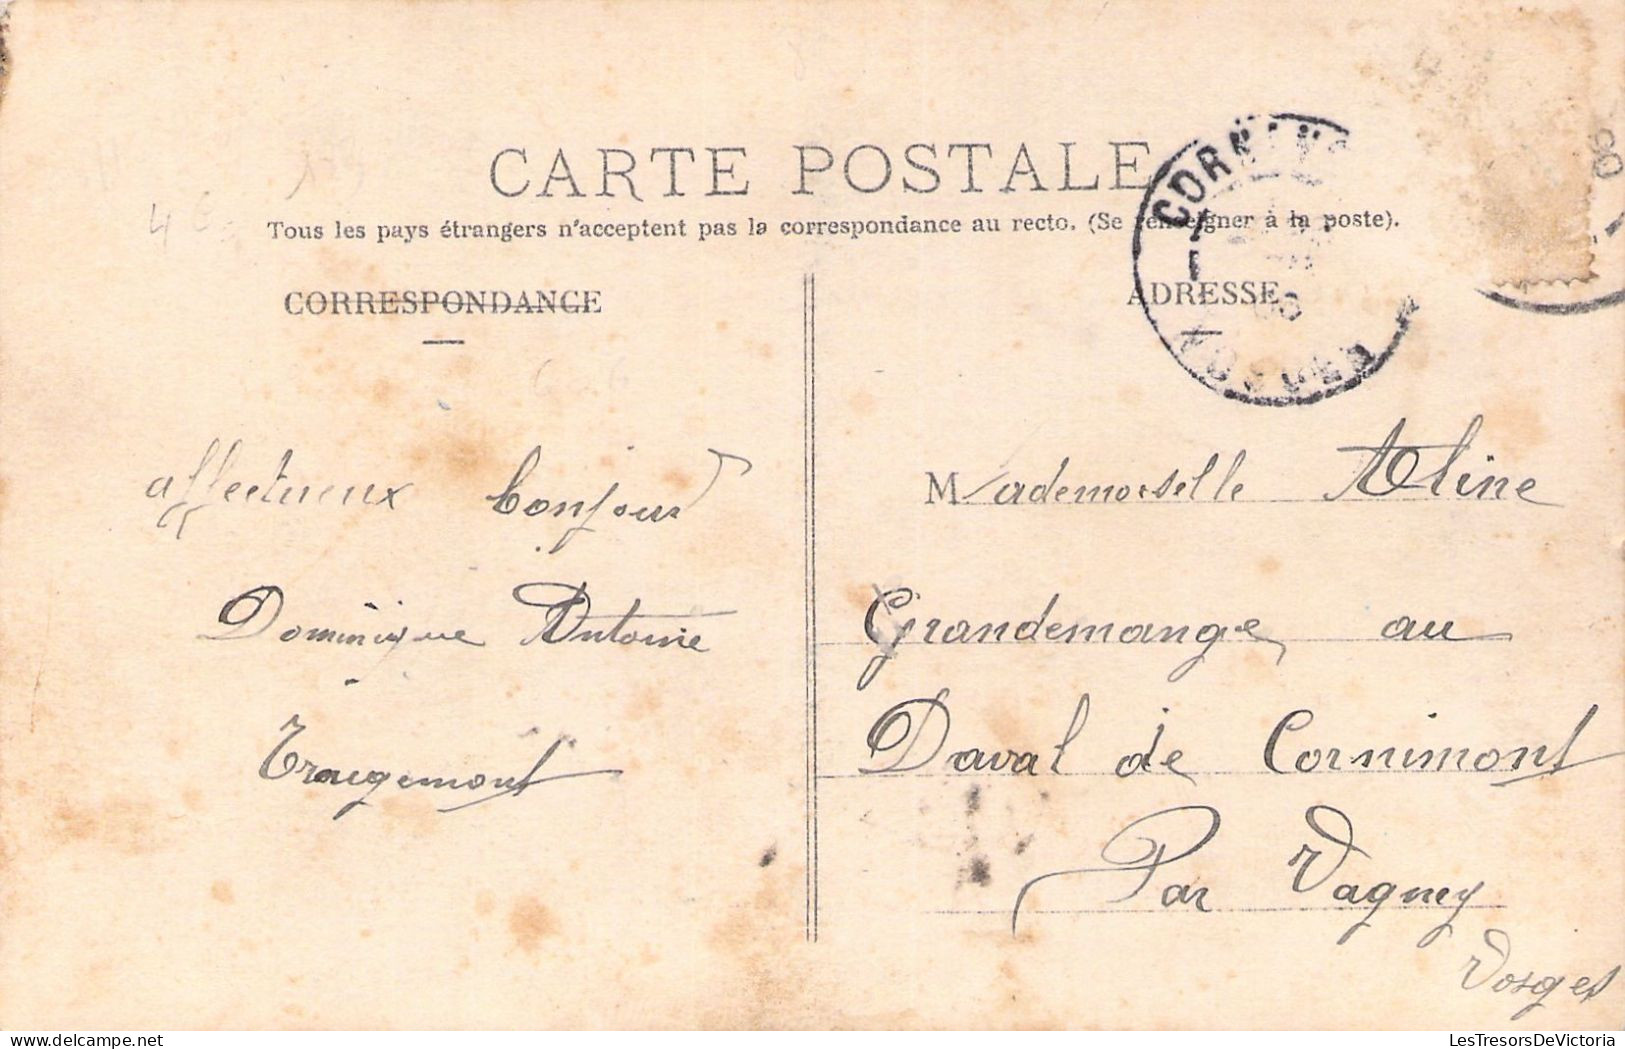 CARTE POSTALE
Tous les pays étrangers n'acceptent pas la correspondance au recto. (Se renseigner à la poste).
CORRESPONDANCE
ADRESSE
VOSGES
4€
affectueux bonjour
Dominique Antoine
Trougemont
Mademoiselle Aline
Grandemange au
Daval de Cornimont
Par Vagney
Vosges
LesTresorsDeVictoria